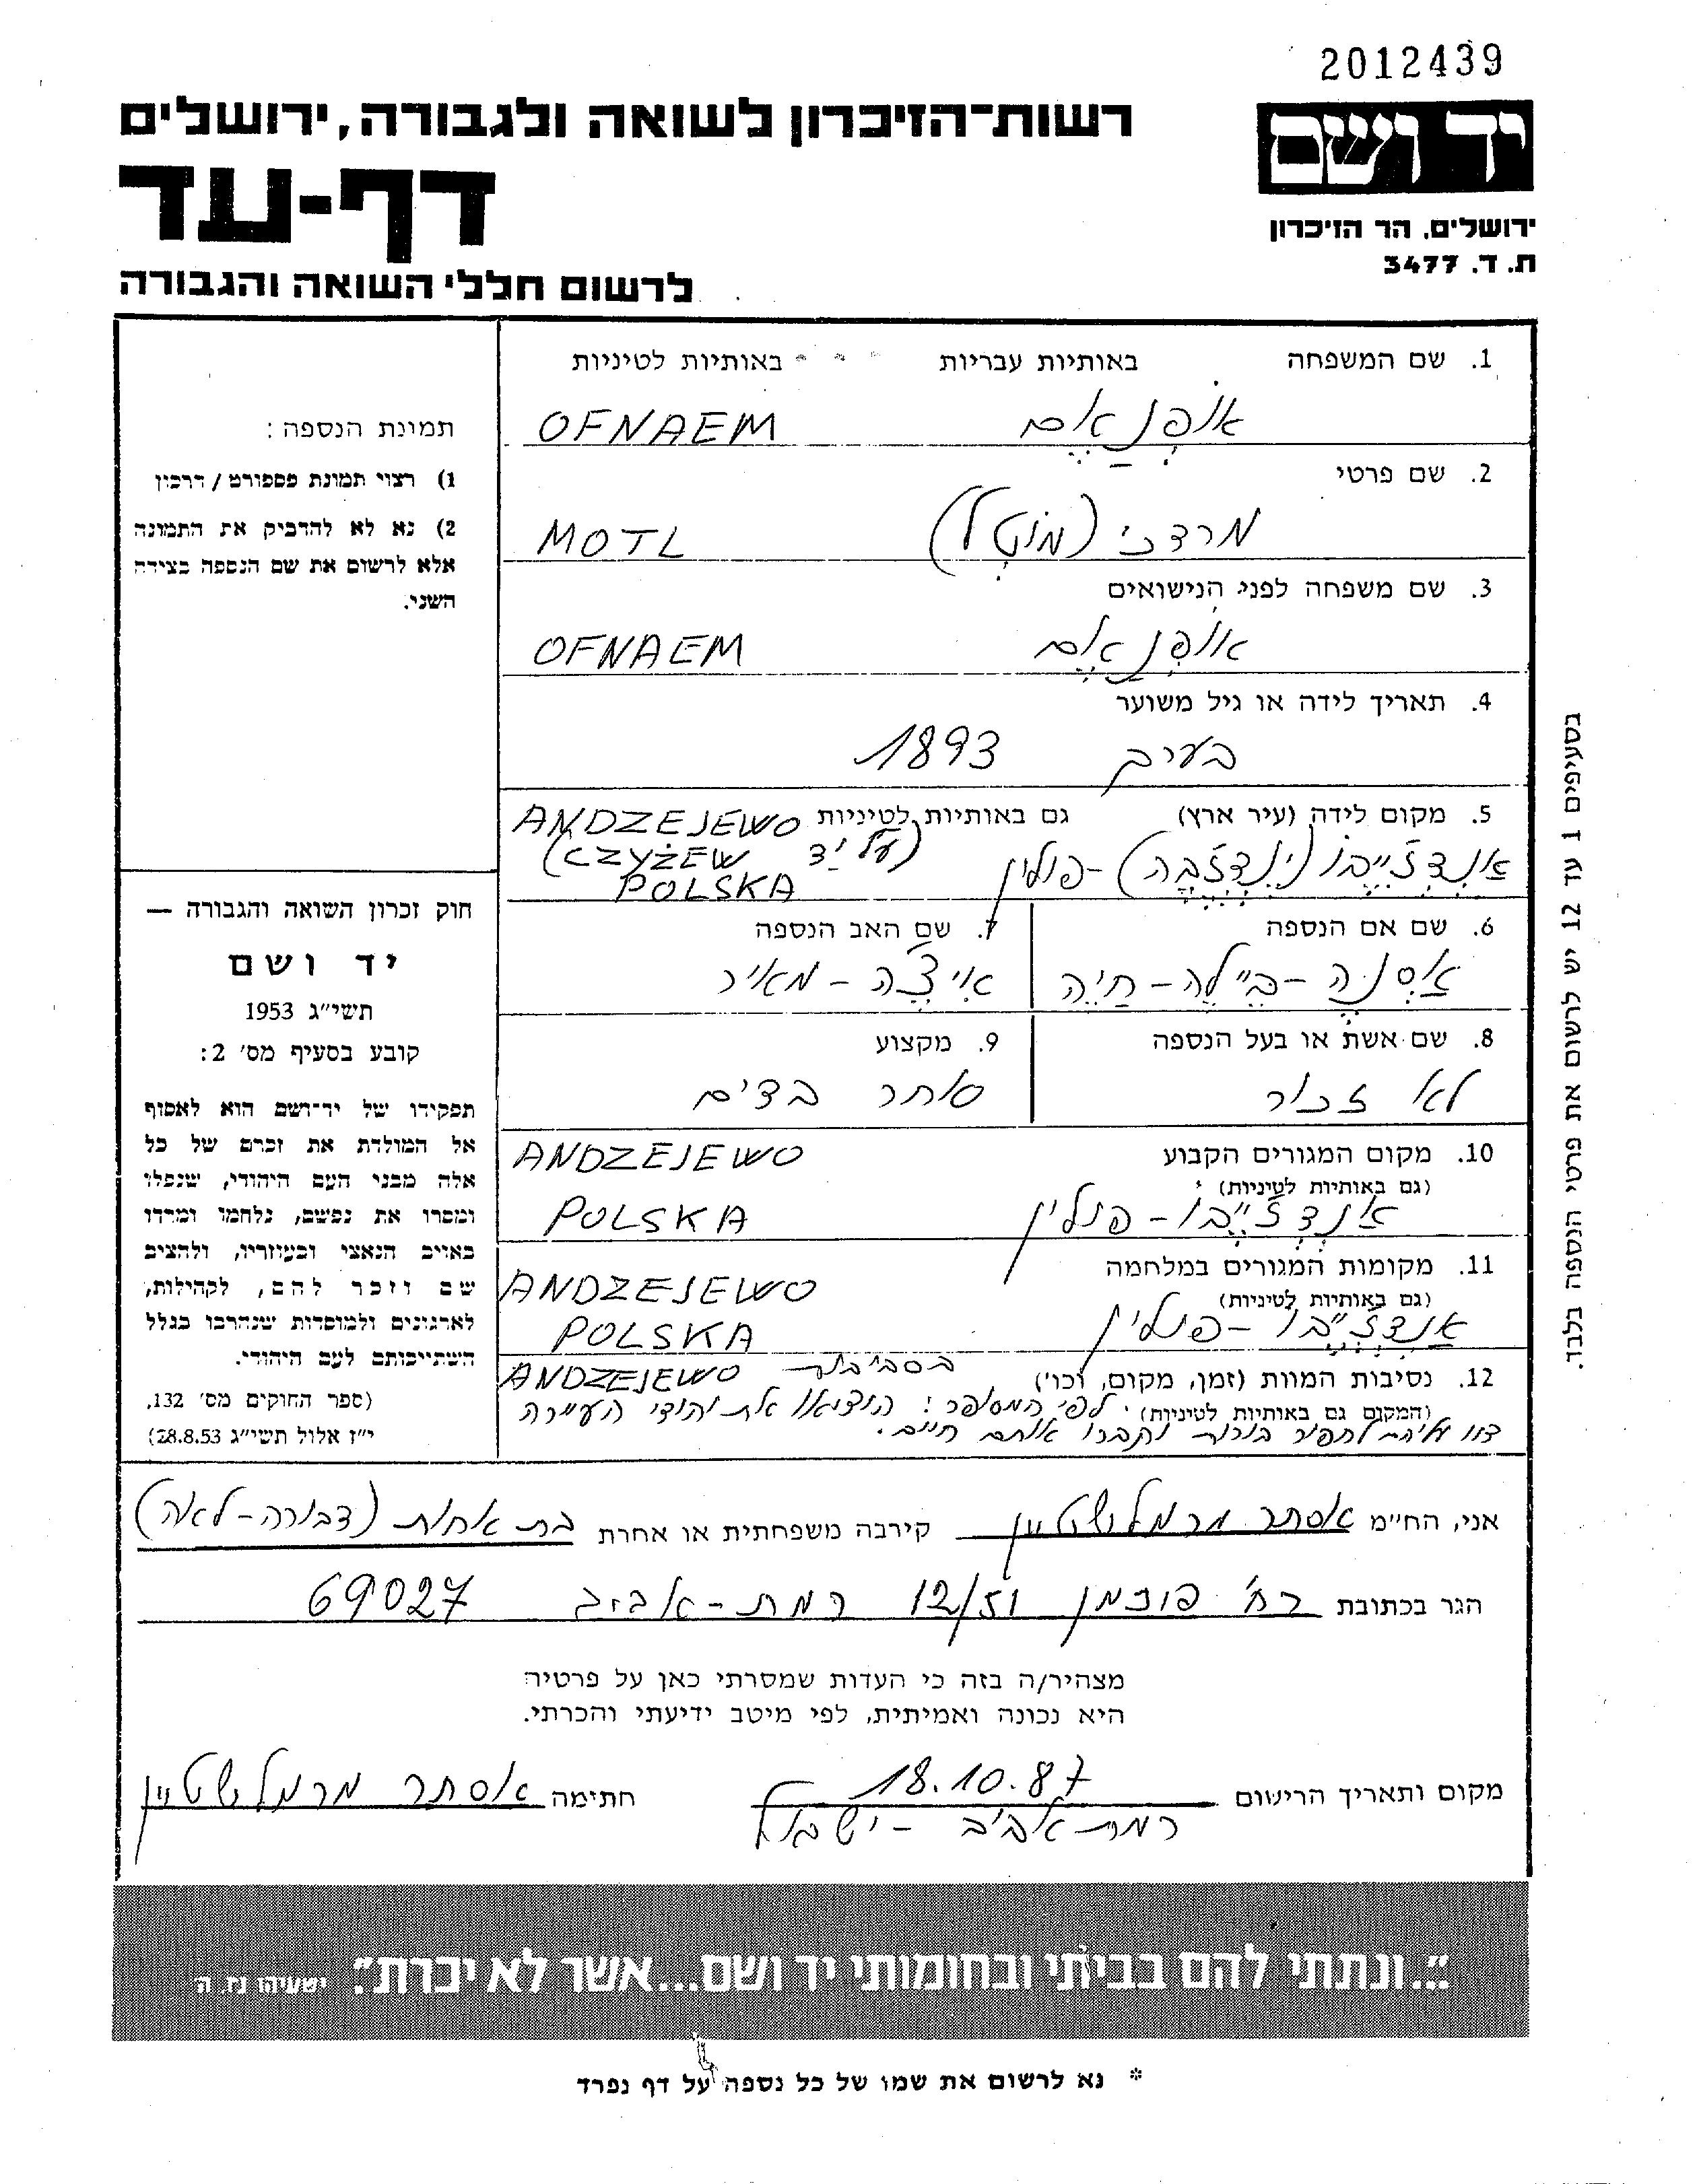 2012439
רשות-הזיכרון לשואה ולגבורה, ירושלים
יד ושם
דף-עד
ירושלים, הר הזיכרון
ת. ד. 3477
לרשום חללי השואה והגבורה
1. שם המשפחה באותיות עבריות באותיות לטיניות
אופְנַאֶם OFNAEM
2. שם פרטי
מרדכי (מוֹטְל) MOTL
3. שם משפחה לפני הנישואים
אופְנַאֶם OFNAEM
4. תאריך לידה או גיל משוער
בערך 1893
5. מקום לידה (עיר ארץ) גם באותיות לטיניות ANDZEJEWO
(על יד CZYŻEW)
POLSKA
פולין
6. שם אם הנספה
אַסְנֶה-בֵּיילֶה-חַיֶה
7. שם האב הנספה
אִיצֶ'ה-מאיר
8. שם אשת או בעל הנספה
לא זכור
9. מקצוע
סוחר בדים
10. מקום המגורים הקבוע ANDZEJEWO
(גם באותיות לטיניות)
אנדזֶ'יֶיבו-פולין POLSKA
11. מקומות המגורים במלחמה ANDZEJEWO
(גם באותיות לטיניות)
אנדזֶ'יֶיבו-פולין POLSKA
12. נסיבות המוות (זמן, מקום, וכו') בסביבות ANDZEJEWO
(המקום גם באותיות לטיניות). לפי המסופר: הוציאו את יהודי העיירה
צוו עליהם לחפור בורות וקברו אותם חיים.
תמונת הנספה:
1) רצוי תמונת פספורט / דרכון
2) נא לא להדביק את התמונה
אלא לרשום את שם הנספה בצידה
השני.
חוק זכרון השואה והגבורה —
יד ושם
תשי"ג 1953
קובע בסעיף מס' 2:
תפקידו של יד-ושם הוא לאסוף
אל המולדת את זכרם של כל
אלה מבני העם היהודי, שנפלו
ומסרו את נפשם, נלחמו ומרדו
באויב הנאצי ובעוזריו, ולהציב
שם וזכר להם, לקהילות,
לארגונים ולמוסדות שנהרבו בגלל
השתייכותם לעם היהודי.
(ספר החוקים מס' 132,
י"ז אלול תשי"ג 28.8.53)
בסעיפים 1 עד 12 יש לרשום את פרטי הנספה בלבד.
אני, החי"מ אסתר מרמלשטיין קירבה משפחתית או אחרת בת אחות (דבורה-לאה)
הגר בכתובת רח' פוזמן 12/51 רמת-אביב 69027
מצהיר/ה בזה כי העדות שמסרתי כאן על פרטיה
היא נכונה ואמיתית, לפי מיטב ידיעתי והכרתי.
מקום ותאריך הרישום 18.10.87 חתימה אסתר מרמלשטיין
רמת אביב - ישראל
"...ונתתי להם בביתי ובחומותי יד ושם...אשר לא יכרת". ישעיהו נז, ה
* נא לרשום את שמו של כל נספה על דף נפרד